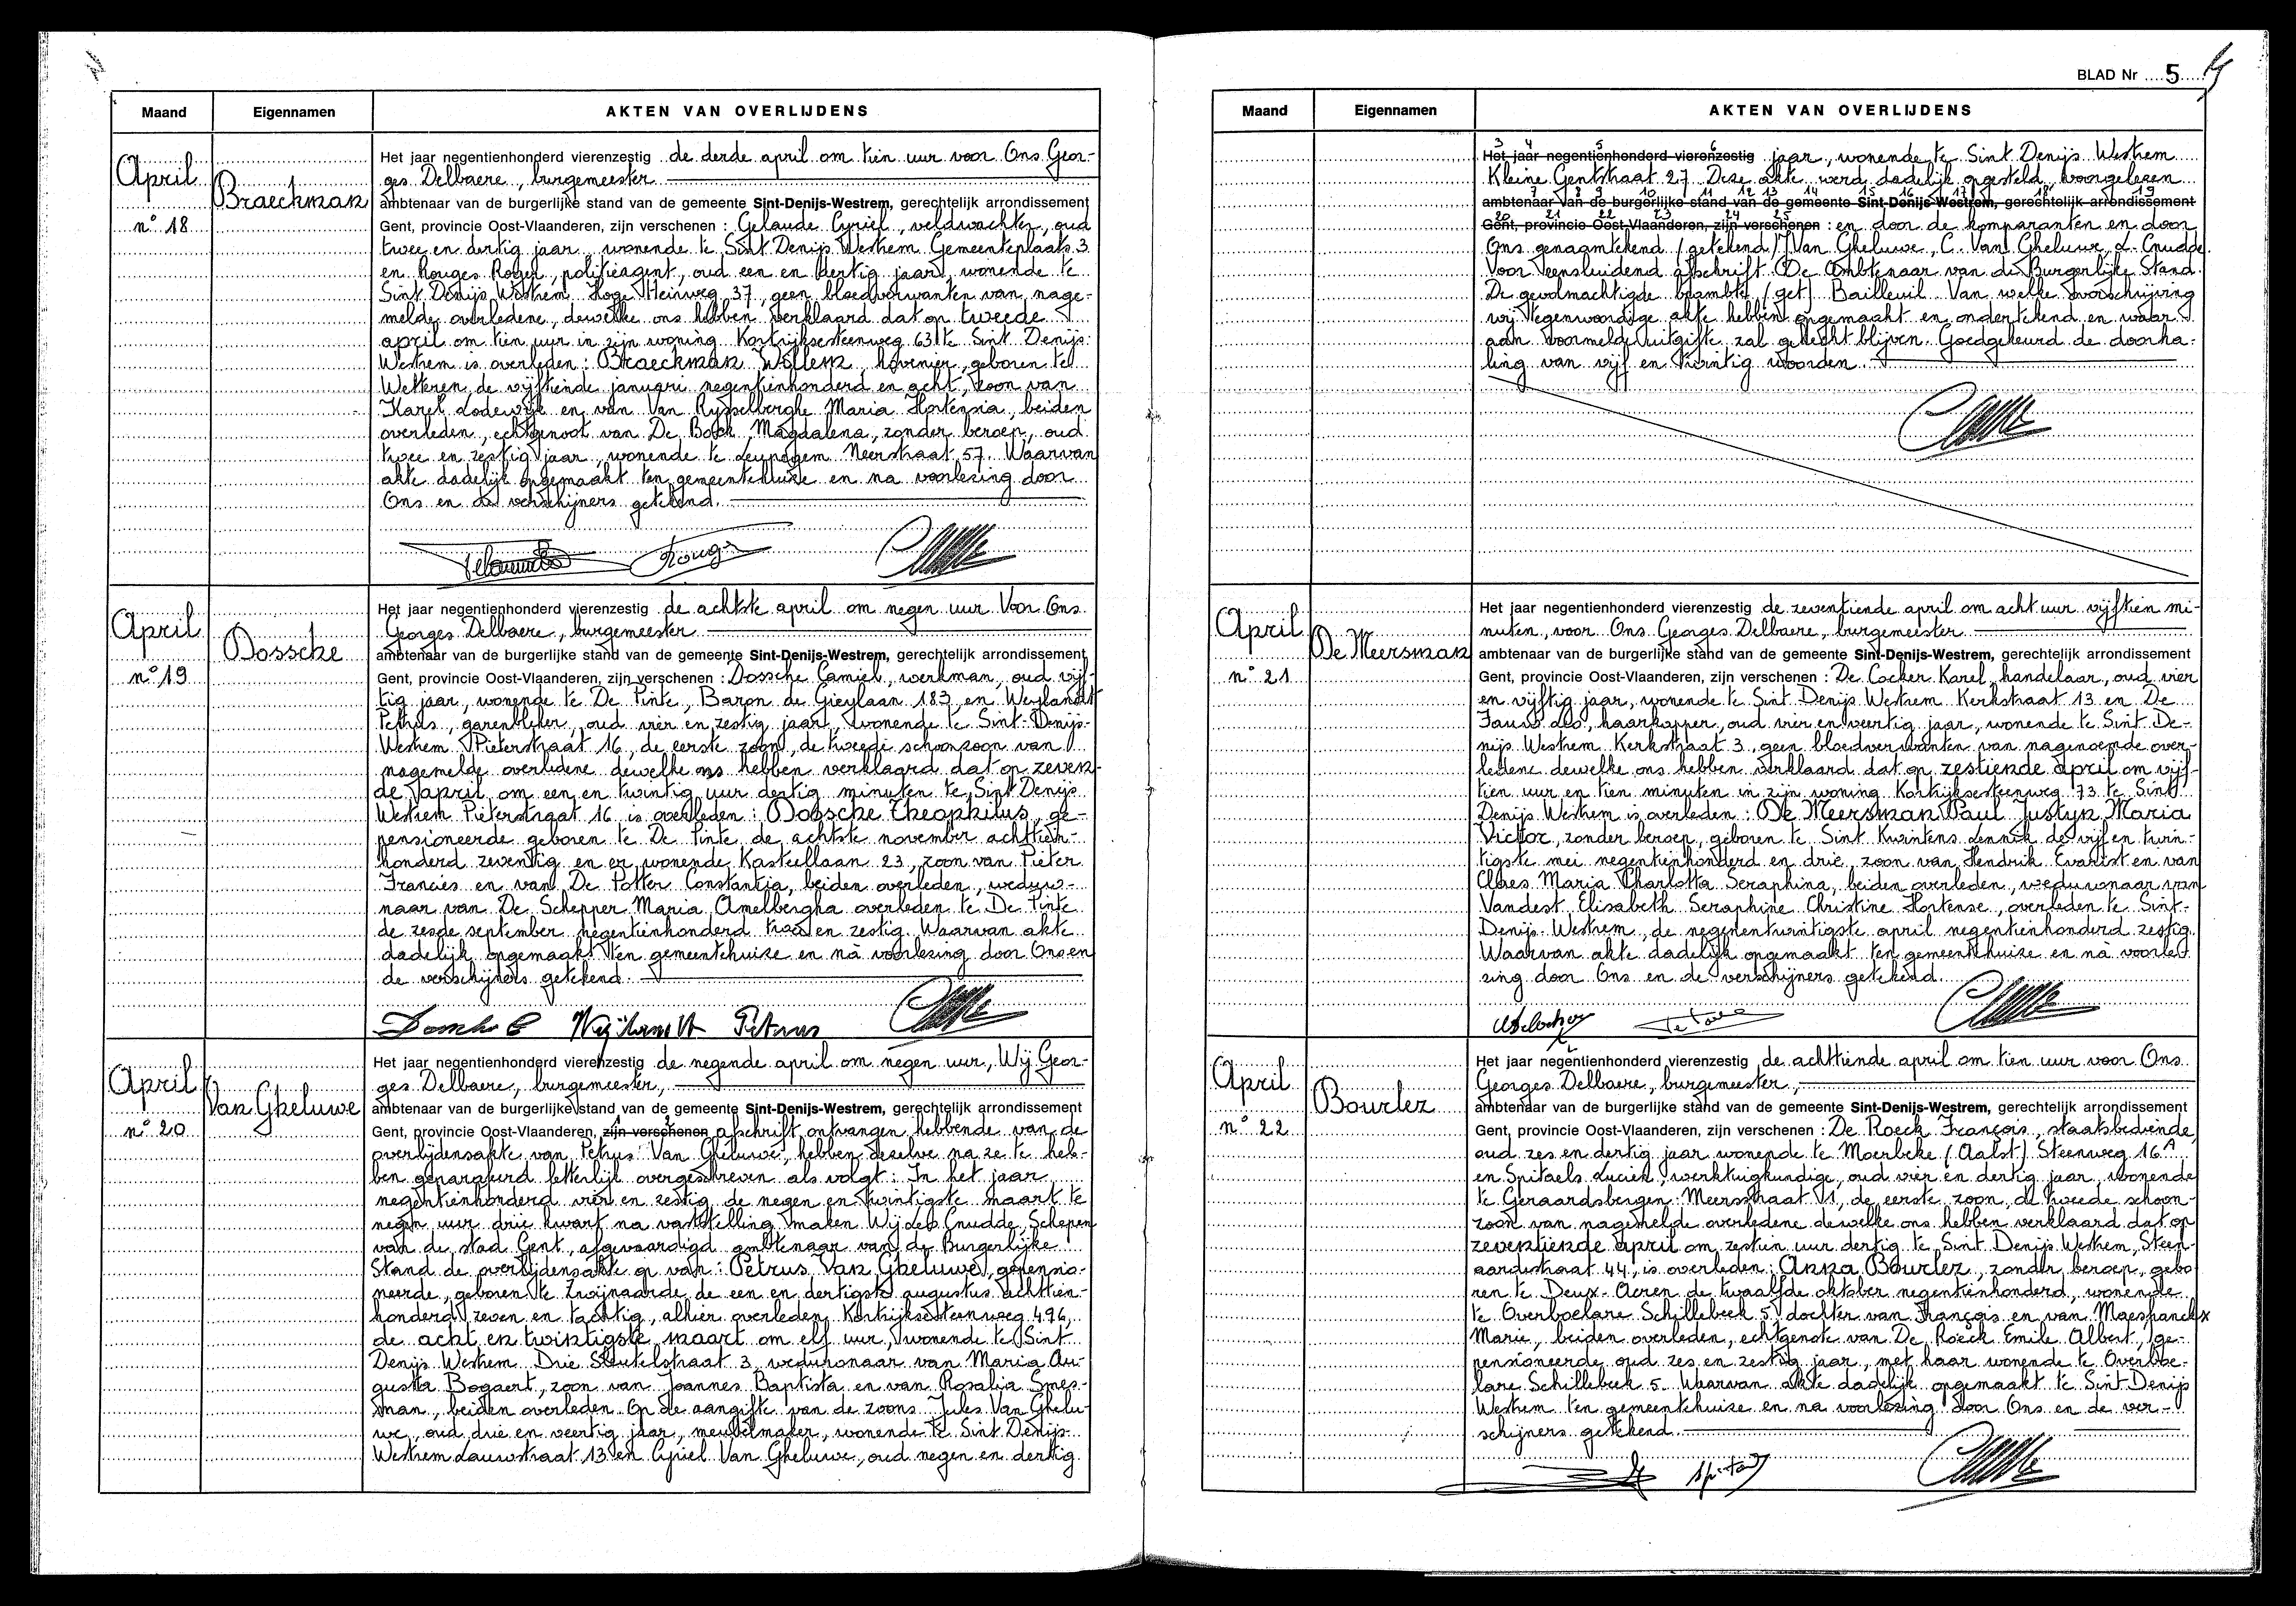 Maand Eigennamen AKTEN VAN OVERLIJDENS
April
Braeckman
n° 18
Het jaar negentienhonderd vierenzestig de derde april om tien uur voor Ons Geor-
ges Delbaere, burgemeester
ambtenaar van de burgerlijke stand van de gemeente Sint-Denijs-Westrem, gerechtelijk arrondissement
Gent, provincie Oost-Vlaanderen, zijn verschenen : Gelaude Cyriel, veldwachter, oud
twee en dertig jaar, wonende te Sint Denijs Westrem Gemeenteplaats 3
en Rouges Roger, politieagent, oud een en dertig jaar, wonende te
Sint Denijs Westrem Hoge Heirweg 37, geen bloedverwanten van nage-
melde overledene, dewelke ons hebben verklaard dat op tweede
april om tien uur in zijn woning Kortrijksesteenweg 631 te Sint Denijs
Westrem is overleden : Braeckman Willem, hovenier, geboren te
Wetteren de vijftiende januari negentienhonderd en acht, zoon van
Karel Lodewijk en van Van Rysselberghe Maria Hortensia, beiden
overleden, echtgenoot van De Bock Magdalena, zonder beroep, oud
twee en zestig jaar, wonende te Leupegem Neerstraat 57. Waarvan
akte dadelijk opgemaakt ten gemeentehuize en na voorlezing door
Ons en de verschijners getekend.
April
Dossche
n° 19
Het jaar negentienhonderd vierenzestig de achtste april om negen uur Voor Ons
Georges Delbaere, burgemeester
ambtenaar van de burgerlijke stand van de gemeente Sint-Denijs-Westrem, gerechtelijk arrondissement
Gent, provincie Oost-Vlaanderen, zijn verschenen : Dossche Camiel, werkman, oud vijf-
tig jaar, wonende te De Pinte, Baron de Gieylaan 183 en Weylandt
Petrus, garenbleker, oud vier en zestig jaar, wonende te Sint-Denijs-
Westrem Pieterstraat 16, de eerste zoon, de tweede schoonzoon van
nagemelde overledene dewelke ons hebben verklaard dat op zeven-
de april om een en twintig uur dertig minuten te Sint Denijs
Westrem Pieterstraat 16 is overleden : Dossche Theophilus, ge-
pensioneerde geboren te De Pinte de achtste november achttien-
honderd zeventig en er wonende Kasteellaan 23, zoon van Pieter
Francies en van De Potter Constantia, beiden overleden, weduw-
naar van De Schepper Maria Amelbergha overleden te De Pinte
de zesde september negentienhonderd twee en zestig. Waarvan akte
dadelijk opgemaakt ten gemeentehuize en nà voorlezing door Ons en
de verschijners getekend.
Dossche C Weylandt Petrus
April
Van Gheluwe
n° 20
Het jaar negentienhonderd vierenzestig de negende april om negen uur, Wij Geor-
ges Delbaere, burgemeester,
ambtenaar van de burgerlijke stand van de gemeente Sint-Denijs-Westrem, gerechtelijk arrondissement
1 2
Gent, provincie Oost-Vlaanderen, zijn verschenen afschrift ontvangen hebbende van de
overlijdensakte van Petrus Van Gheluwe, hebben dezelve na ze te heb-
ben geparafeerd letterlijk overgeschreven als volgt : In het jaar
negentienhonderd vier en zestig de negen en twintigste maart te
negen uur drie kwart na vaststelling maken Wij Leo Cnudde, Schepen
van de stad Gent, afgevaardigd ambtenaar van de Burgerlijke
Stand de overlijdensakte op van : Petrus Van Gheluwe, gepensio-
neerde, geboren te Zwijnaarde de een en dertigste augustus achttien-
honderd zeven en tachtig, alhier overleden Kortrijksesteenweg 496,
de acht en twintigste maart om elf uur, wonende te Sint
Denijs Westrem Drie Sleutelstraat 3, weduwnaar van Maria Au-
gusta Bogaert, zoon van Joannes Baptista en van Rosalia Smes-
man, beiden overleden. Op de aangifte van de zoons Jules Van Ghelu-
we, oud drie en veertig jaar, meubelmaker, wonende te Sint Denijs-
Westrem Lauwstraat 13 en Cyriel Van Gheluwe, oud negen en dertig
BLAD Nr 5
Maand Eigennamen AKTEN VAN OVERLIJDENS
3 4 5 6
Het jaar negentienhonderd vierenzestig jaar, wonende te Sint Denijs Westrem
Kleine Gentstraat 27. Deze akte werd dadelijk opgesteld, voorgelezen
7 8 9 10 11 12 13 14 15 16 17 18 19
ambtenaar van de burgerlijke stand van de gemeente Sint-Denijs-Westrem, gerechtelijk arrondissement
20 21 22 23 24 25
Gent, provincie Oost-Vlaanderen, zijn verschenen : en door de komparanten en door
Ons genaamtekend (getekend) J Van Gheluwe, C. Van Gheluwe, L. Cnudde.
Voor eensluidend afschrift De Ambtenaar van de Burgerlijke Stand.
De gevolmachtigde beambte (get) Bailleuil. Van welke overschrijving
wij tegenwoordige akte hebben opgemaakt en ondertekend en waar-
aan voormelde uitgifte zal gehecht blijven. Goedgekeurd de doorha-
ling van vijf en twintig woorden.
April
De Meersman
n° 21
Het jaar negentienhonderd vierenzestig de zeventiende april om acht uur vijftien mi-
nuten, voor Ons Georges Delbaere, burgemeester
ambtenaar van de burgerlijke stand van de gemeente Sint-Denijs-Westrem, gerechtelijk arrondissement
Gent, provincie Oost-Vlaanderen, zijn verschenen : De Cocker Karel, handelaar, oud vier
en vijftig jaar, wonende te Sint Denijs Westrem Kerkstraat 13 en De
Fauw Leo, haarkapper, oud vier en veertig jaar, wonende te Sint De-
nijs Westrem Kerkstraat 3, geen bloedverwanten van nagenoemde over-
ledene dewelke ons hebben verklaard dat op zestiende april om vijf-
tien uur en tien minuten in zijn woning Kortrijksesteenweg 73 te Sint
Denijs Westrem is overleden : De Meersman Paul Justyn Maria
Victor, zonder beroep, geboren te Sint Kwintens Lennik de vijf en twin-
tigste mei negentienhonderd en drie, zoon van Hendrik Evarist en van
Claes Maria Charlotta Seraphina, beiden overleden, weduwnaar van
Vandest Elisabeth Seraphine Christine Hortense, overleden te Sint-
Denijs-Westrem, de negenentwintigste april negentienhonderd zestig.
Waarvan akte dadelijk opgemaakt ten gemeentehuize en nà voorle-
zing door Ons en de verschijners getekend.
April
Bourlez
n° 22
Het jaar negentienhonderd vierenzestig de achttiende april om tien uur voor Ons
Georges Delbaere, burgemeester,
ambtenaar van de burgerlijke stand van de gemeente Sint-Denijs-Westrem, gerechtelijk arrondissement
Gent, provincie Oost-Vlaanderen, zijn verschenen : De Roeck François, staatsbediende,
oud zes en dertig jaar wonende te Moerbeke (Aalst) Steenweg 16A
en Spitaels Lucien, werktuigkundige, oud vier en dertig jaar, wonende
te Geraardsbergen Meersstraat 1, de eerste zoon, de tweede schoon-
zoon van nagemelde overledene dewelke ons hebben verklaard dat op
zeventiende april om zestien uur dertig te Sint Denijs Westrem, Steen-
aardestraat 44, is overleden : Anna Bourlez, zonder beroep, gebo-
ren te Deux-Acren de twaalfde oktober negentienhonderd, wonende
te Overboelare Schillebeek 5 dochter van François en van Maeshanckx
Marie, beiden overleden, echtgenote van De Roeck Emile Albert, ge-
pensioneerde oud zes en zestig jaar, met haar wonende te Overboe-
lare Schillebeek 5. Waarvan akte dadelijk opgemaakt te Sint Denijs
Westrem ten gemeentehuize en na voorlezing door Ons en de ver-
schijners getekend.